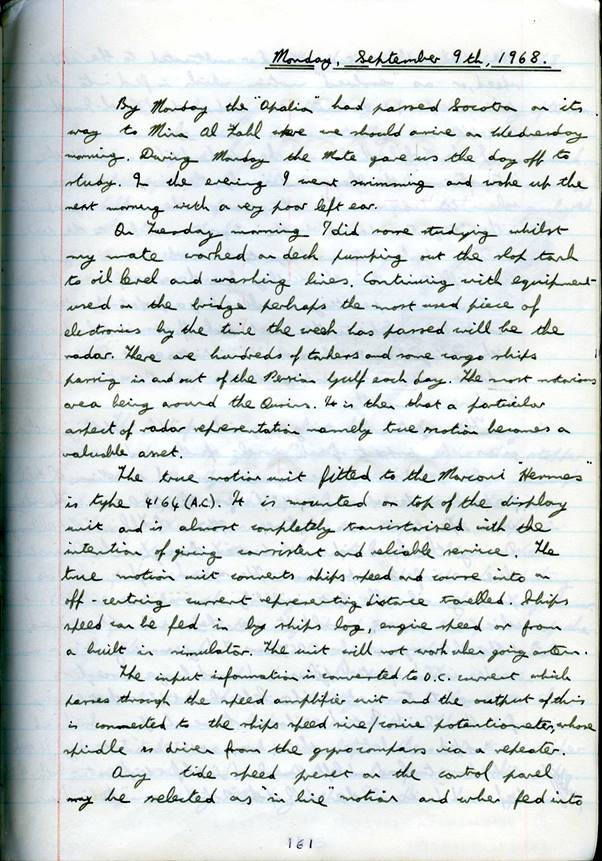 Monday, September 9th, 1968.
By Monday the "Opalia" had passed Socotra on its
way to Mina Al Fahl where we should arrive on Wednesday
morning. During Monday the Mate gave us the day off to
study. In the evening I went swimming and woke up the
next morning with a very poor left ear.
On Tuesday morning I did some studying whilst
my mate worked on deck pumping out the slop tank
to oil level and washing lines. Continuing with equipment
used on the bridge perhaps the most used piece of
electronics by the time the week has passed will be the
radar. There are hundreds of tankers and some cargo ships
passing in and out of the Persian Gulf each day. The most notorious
area being around the Quoins. It is then that a particular
aspect of radar representation namely true motion becomes a
valuable asset.
The true motion unit fitted to the Marconi "Hermes"
is type 4164 (A.C). It is mounted on top of the display
unit and is almost completely transistorised with the
intention of giving consistent and reliable service. The
true motion unit converts ships speed and course into an
off-centring current representing distance travelled. Ships
speed can be fed in by ships log, engine speed or from
a built in simulator. The unit will not work when going astern.
The input information is converted to D.C. current which
passes through the speed amplifier unit and the output of this
is connected to the ships speed sine/cosine potentiometer, whose
spindle is driven from the gyrocompass via a repeater.
Any tide speed preset on the control panel
may be selected as "in line" motion and when fed into
161